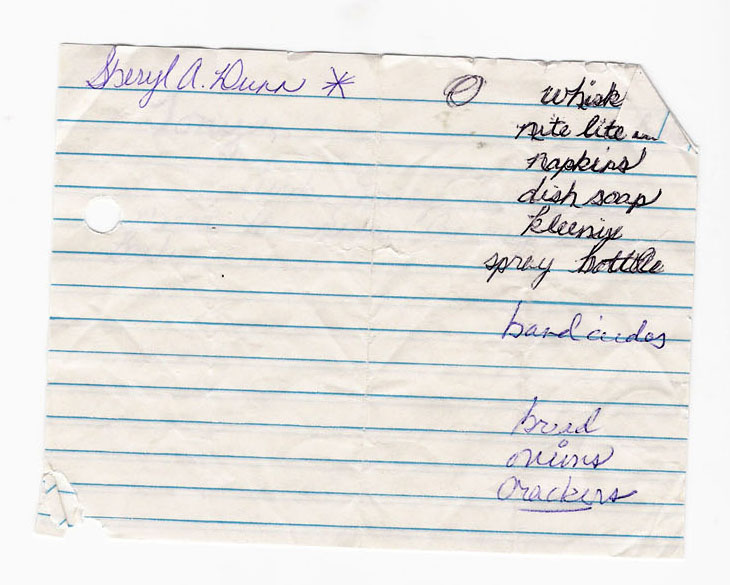 Sheryl A. Dunn *
whisk
nite lite
napkins
dish soap
kleenix
spray bottle
band aides
bread
onions
crackers